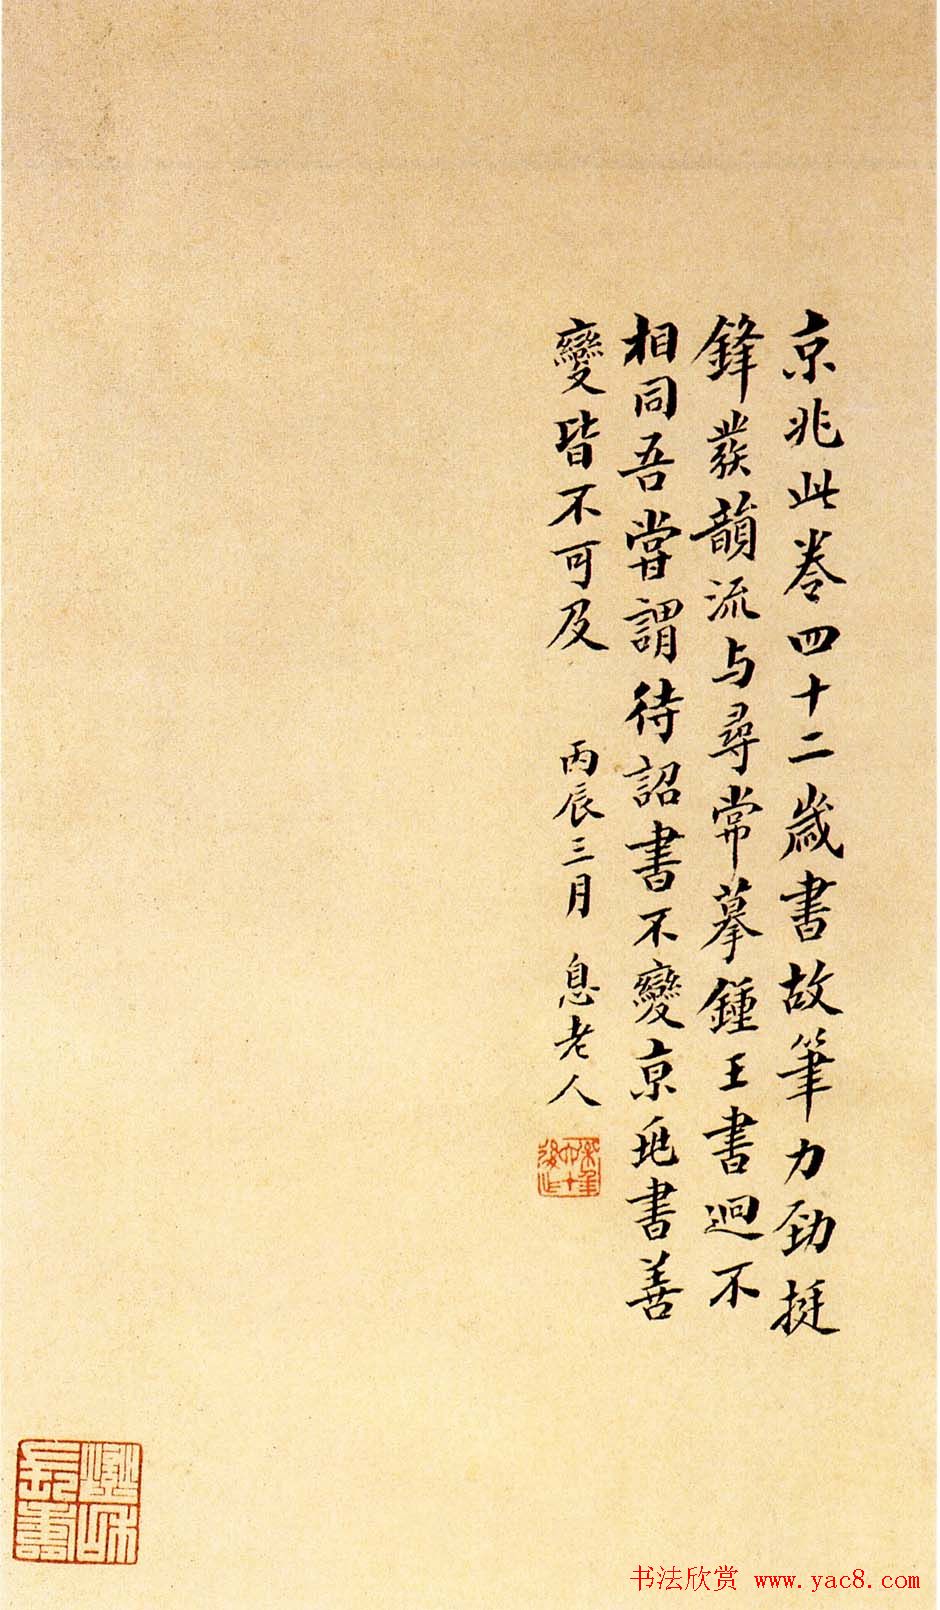 京兆此卷四十二歲書故筆力勁挺
鋒發韻流与尋常摹鍾王書逈不
相同吾嘗謂待詔書不變京兆書善
變皆不可及 丙辰三月 息老人
书法欣赏 www.yac8.com